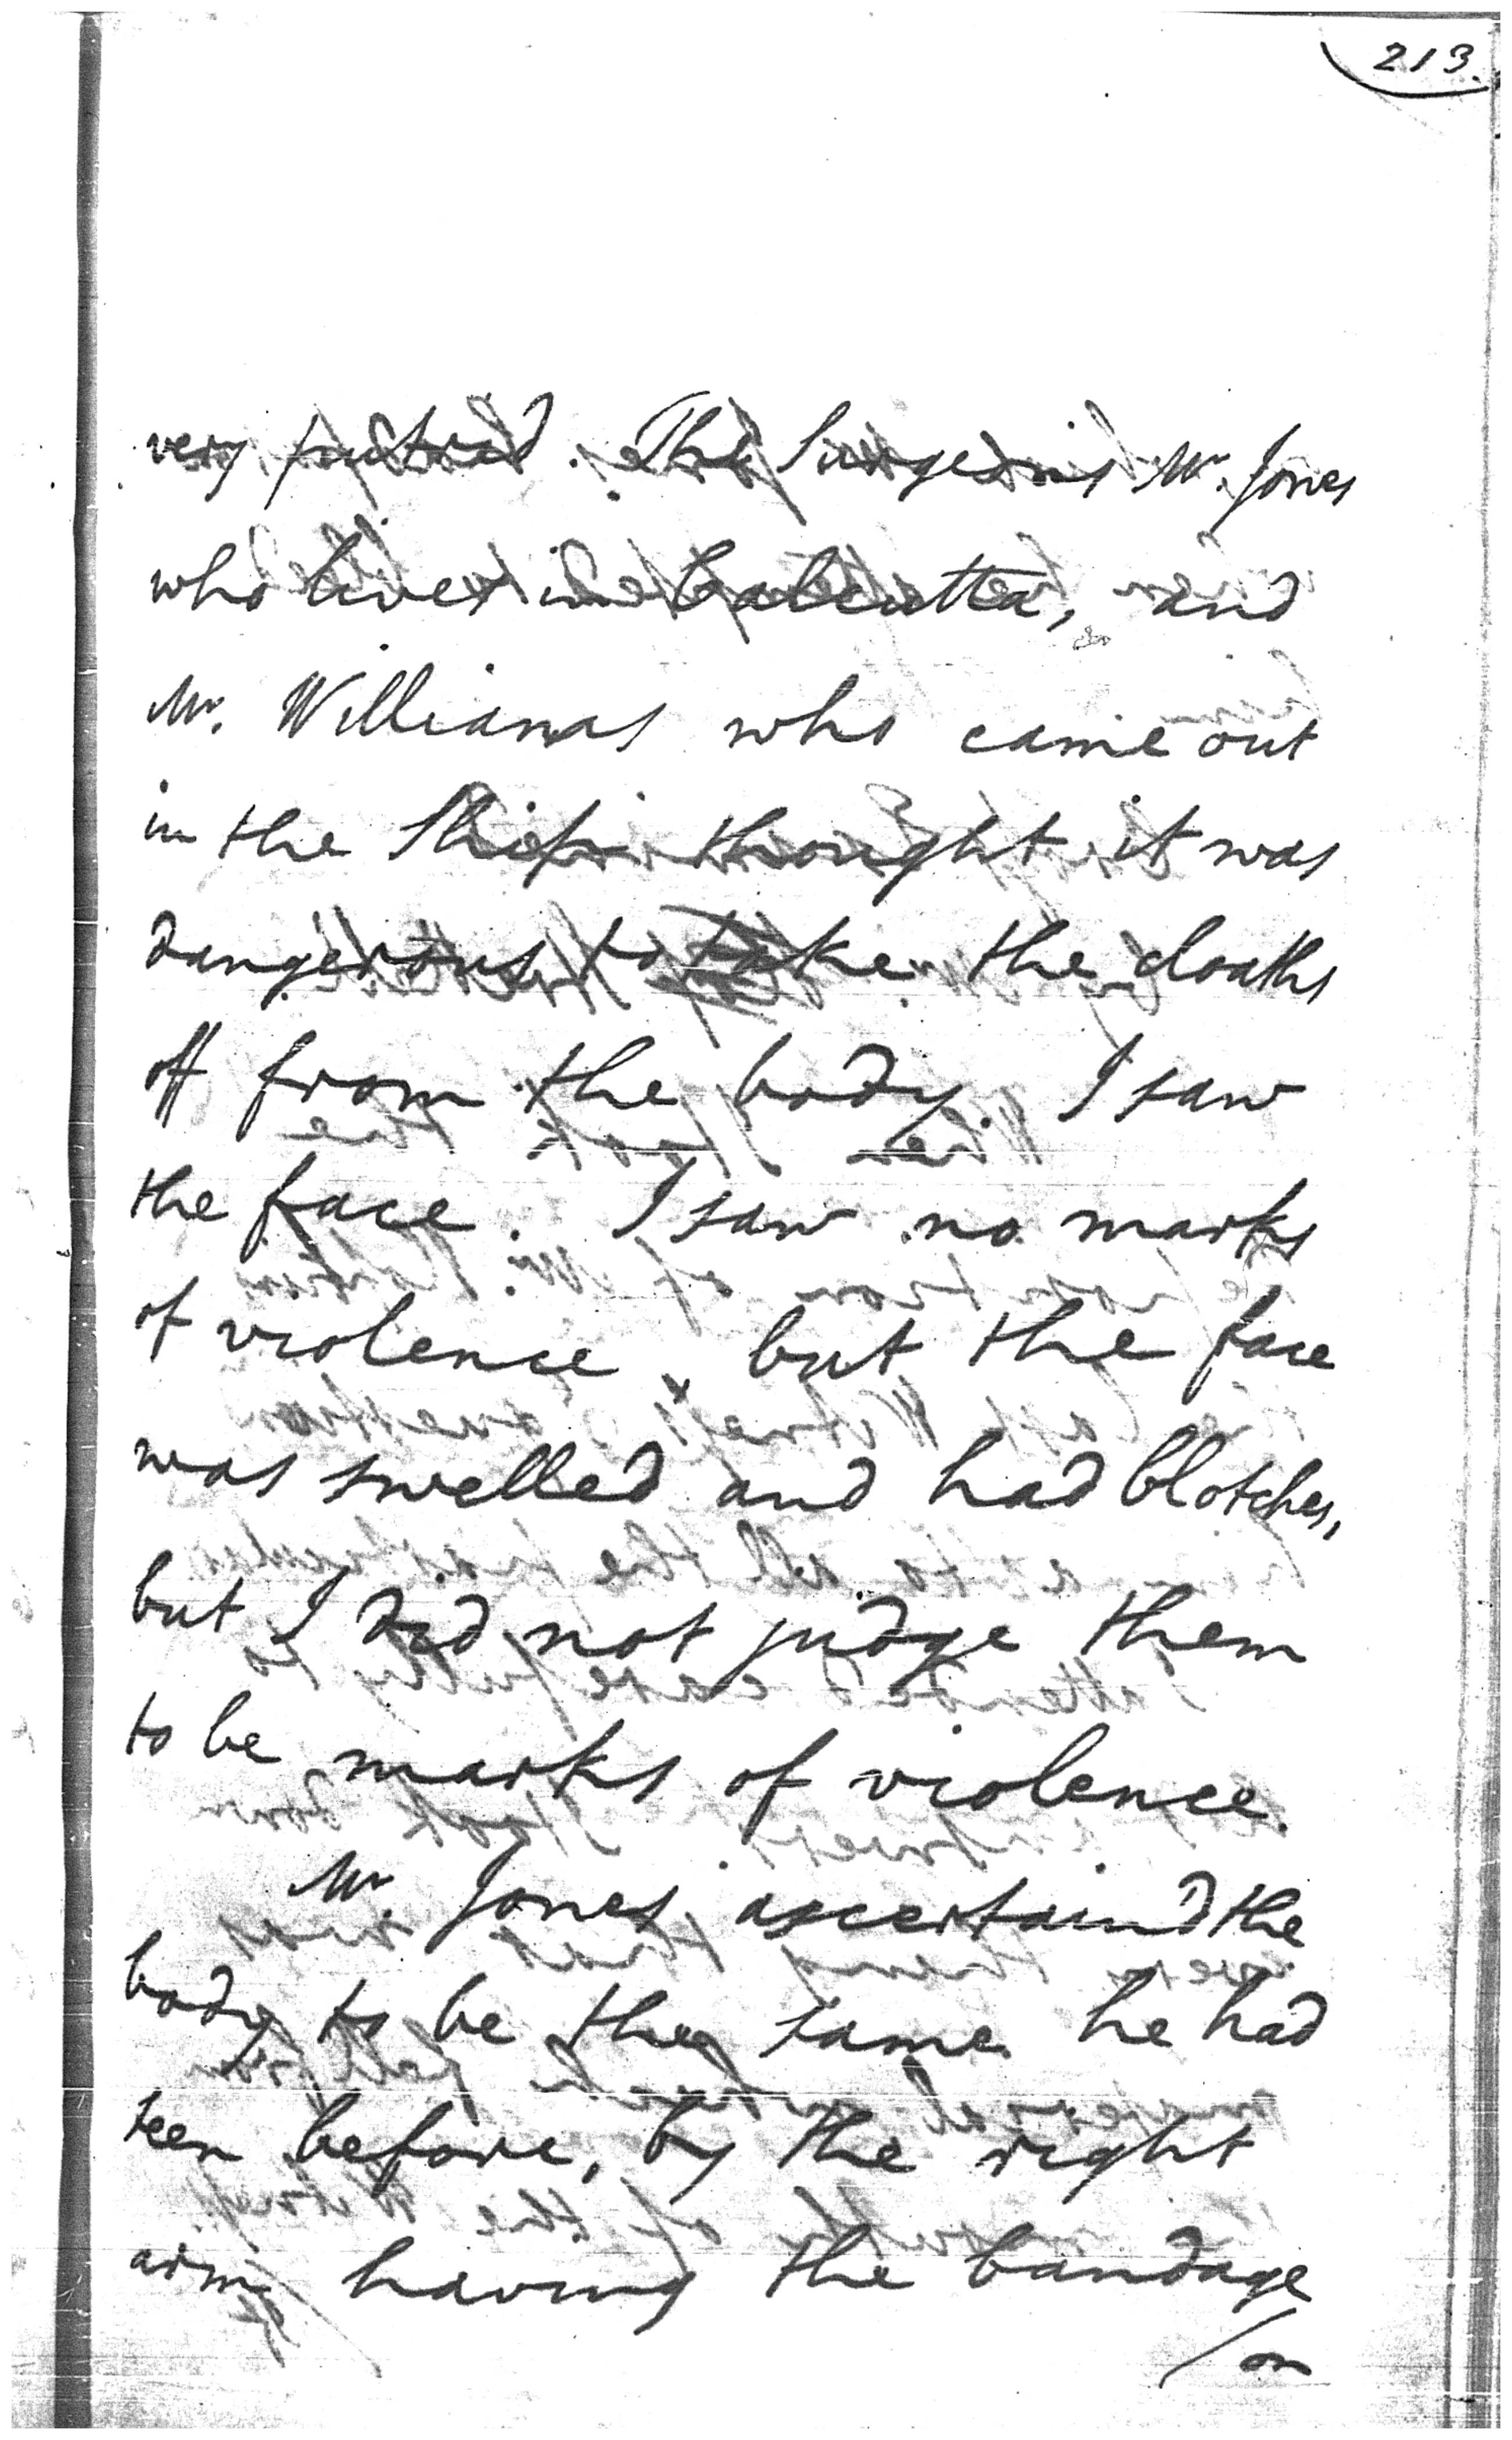 213.
very putrid. The Surgeons Mr. Jones
who lives in Calcutta, and
Mr. Williams who came out
in the Ship thought it was
dangerous to take the cloaths
off from the body. I saw
the face. I saw no marks
of violence, but the face
was swelled and had blotches,
but I did not judge them
to be marks of violence.
Mr. Jones ascertaind the
body to be the same he had
seen before, by the right
arm having the bandage
/on